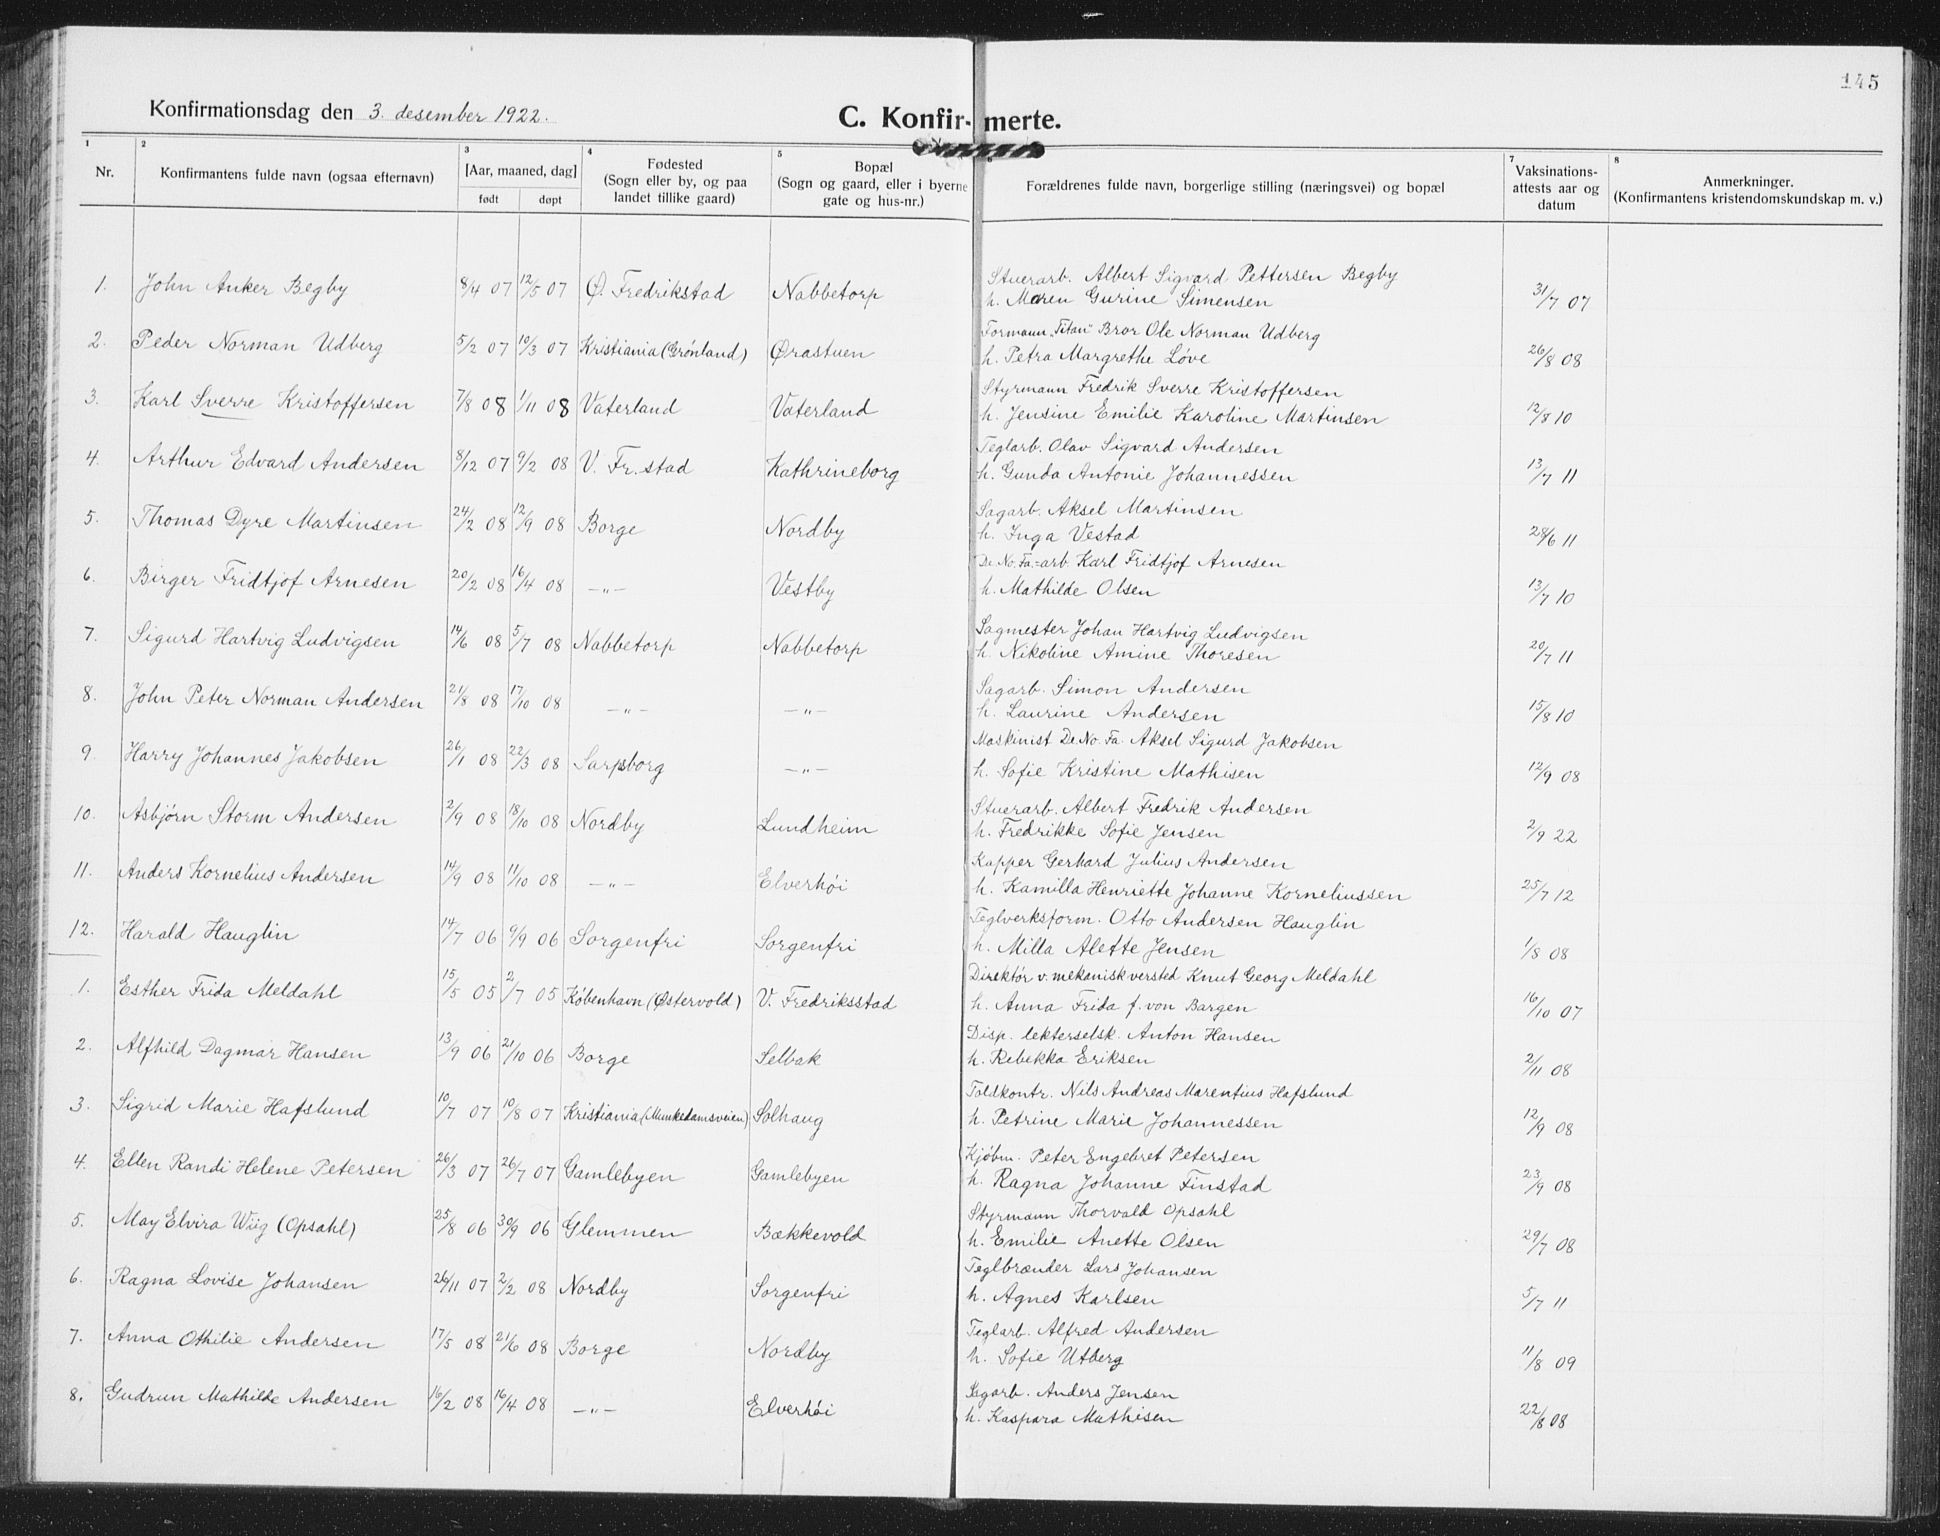 145
Konfirmationsdag den 3. desember 1922.
C. Konfirmerte.
1 2 3 4 5 6 7 8
Nr. Konfirmantens fulde navn (ogsaa efternavn) [Aar, maaned, dag] født døpt Fødested (Sogn eller by, og paa landet tillike gaard) Bopæl (Sogn og gaard, eller i byerne gate og hus-nr.) Forældrenes fulde navn, borgerlige stilling (næringsvei) og bopæl Vaksinations-attests aar og datum Anmerkninger. (Konfirmantens kristendomskundskap m. v.)
1. John Anker Begby 8/4 07 12/5 07 Ø. Fredrikstad Nabbetorp Stuerarb. Albert Sigvard Pettersen Begby
h. Maren Gurine Simensen 31/7 07
2. Peder Norman Udberg 5/2 07 10/3 07 Kristiania (Grønland) Ørastuen Formann „Titan" Bror Ole Norman Udberg
h. Petra Margrethe Løve 26/8 08
3. Karl Sverre Kristoffersen 7/8 08 1/11 08 Vaterland Vaterland Styrmann Fredrik Sverre Kristoffersen
h. Jensine Emilie Karoline Martinsen 12/8 10
4. Arthur Edvard Andersen 8/12 07 9/2 08 V. Fr.stad Kathrineborg Teglarb. Olav Sigvard Andersen
h. Gunda Antonie Johannessen 13/7 11
5. Thomas Dyre Martinsen 24/2 08 12/9 08 Borge Nordby Sagarb. Aksel Martinsen
h. Inga Vestad 28/6 11
6. Birger Fridtjof Arnesen 20/2 08 16/4 08 —"— Vestby De.No.Fa.=arb. Karl Fridtjof Arnesen
h. Mathilde Olsen 13/7 10
7. Sigurd Hartvig Ludvigsen 14/6 08 5/7 08 Nabbetorp Nabbetorp Sagmester Johan Hartvig Ludvigsen
h. Nikoline Amine Thoresen 20/7 11
8. John Peter Norman Andersen 21/8 08 17/10 08 —"— —"— Sagarb. Simon Andersen
h. Laurine Andersen 15/8 10
9. Harry Johannes Jakobsen 26/1 08 22/3 08 Sarpsborg —"— Maskinist De.No.Fa. Aksel Sigurd Jakobsen
h. Sofie Kristine Mathisen 12/9 08
10. Asbjørn Storm Andersen 2/9 08 18/10 08 Nordby Lundheim Stuerarb. Albert Fredrik Andersen
h. Fredrikke Sofie Jensen 2/9 22
11. Anders Kornelius Andersen 14/9 08 11/10 08 —"— Elverhöi Kapper Gerhard Julius Andersen
h. Kamilla Henriette Johanne Korneliussen 25/7 12
12. Harald Hauglin 14/7 06 9/9 06 Sorgenfri Sorgenfri Teglverksform. Otto Andersen Hauglin
h. Milla Alette Jensen 1/8 08
1. Esther Frida Meldahl 15/5 05 2/7 05 København (Østervold) V. Fredriksstad Direktør v. mekanisk versted Knut Georg Meldahl
h. Anna Frida f. von Bargen 16/10 07
2. Alfhild Dagmar Hansen 13/9 06 21/10 06 Borge Selbak Disp. lekterselsk. Anton Hansen
h. Rebekka Eriksen 2/11 08
3. Sigrid Marie Hafslund 10/7 07 10/8 07 Kristiania (Munkedamsveien) Solhaug Toldkontr. Nils Andreas Marentius Hafslund
h. Petrine Marie Johannessen 12/9 08
4. Ellen Randi Helene Petersen 26/3 07 26/7 07 Gamlebyen Gamlebyen Kjøbm. Peter Engebret Petersen
h. Ragna Johanne Finstad 23/9 08
5. May Elvira Wiig (Opsahl) 25/8 06 30/9 06 Glemmen Bækkevold Styrmann Thorvald Opsahl
h. Emilie Anette Olsen 29/7 08
6. Ragna Lovise Johansen 26/11 07 2/2 08 Nordby Sorgenfri Teglbrænder Lars Johansen
h. Agnes Karlsen 5/7 11
7. Anna Othilie Andersen 17/5 08 21/6 08 Borge Nordby Teglarb. Alfred Andersen
h. Sofie Utberg 11/8 09
8. Gudrun Mathilde Andersen 16/2 08 16/4 08 —"— Elverhöi Sagarb. Anders Jensen
h. Kaspara Mathisen 22/8 08